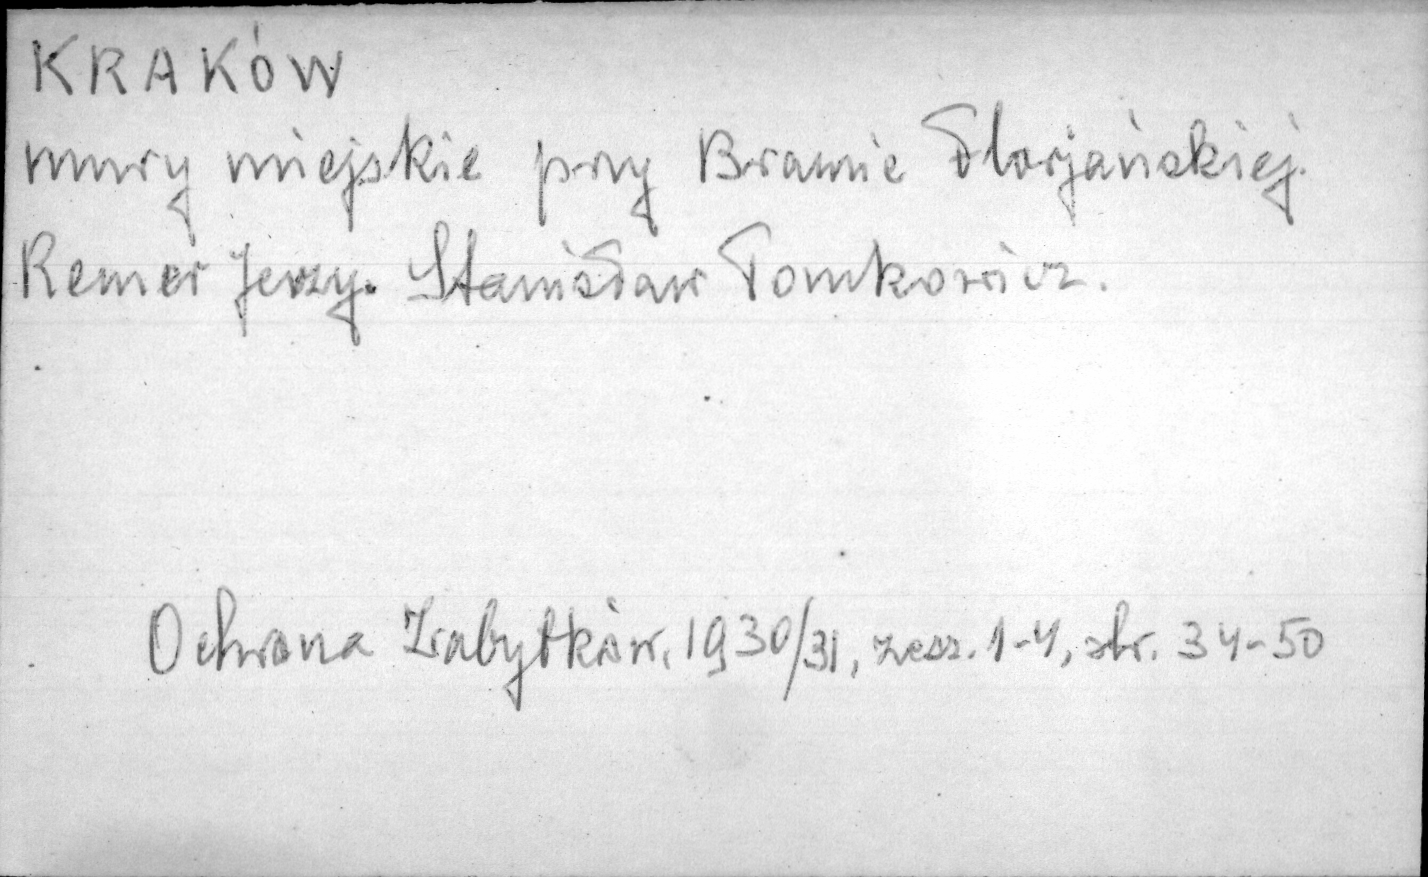 KRAKÓW
mury miejskie przy Bramie Florjańskiej.
Remer Jerzy. Stanisław Tomkowicz.
Ochrona Zabytków, 1930/31, zesz. 1-4, str. 34-50